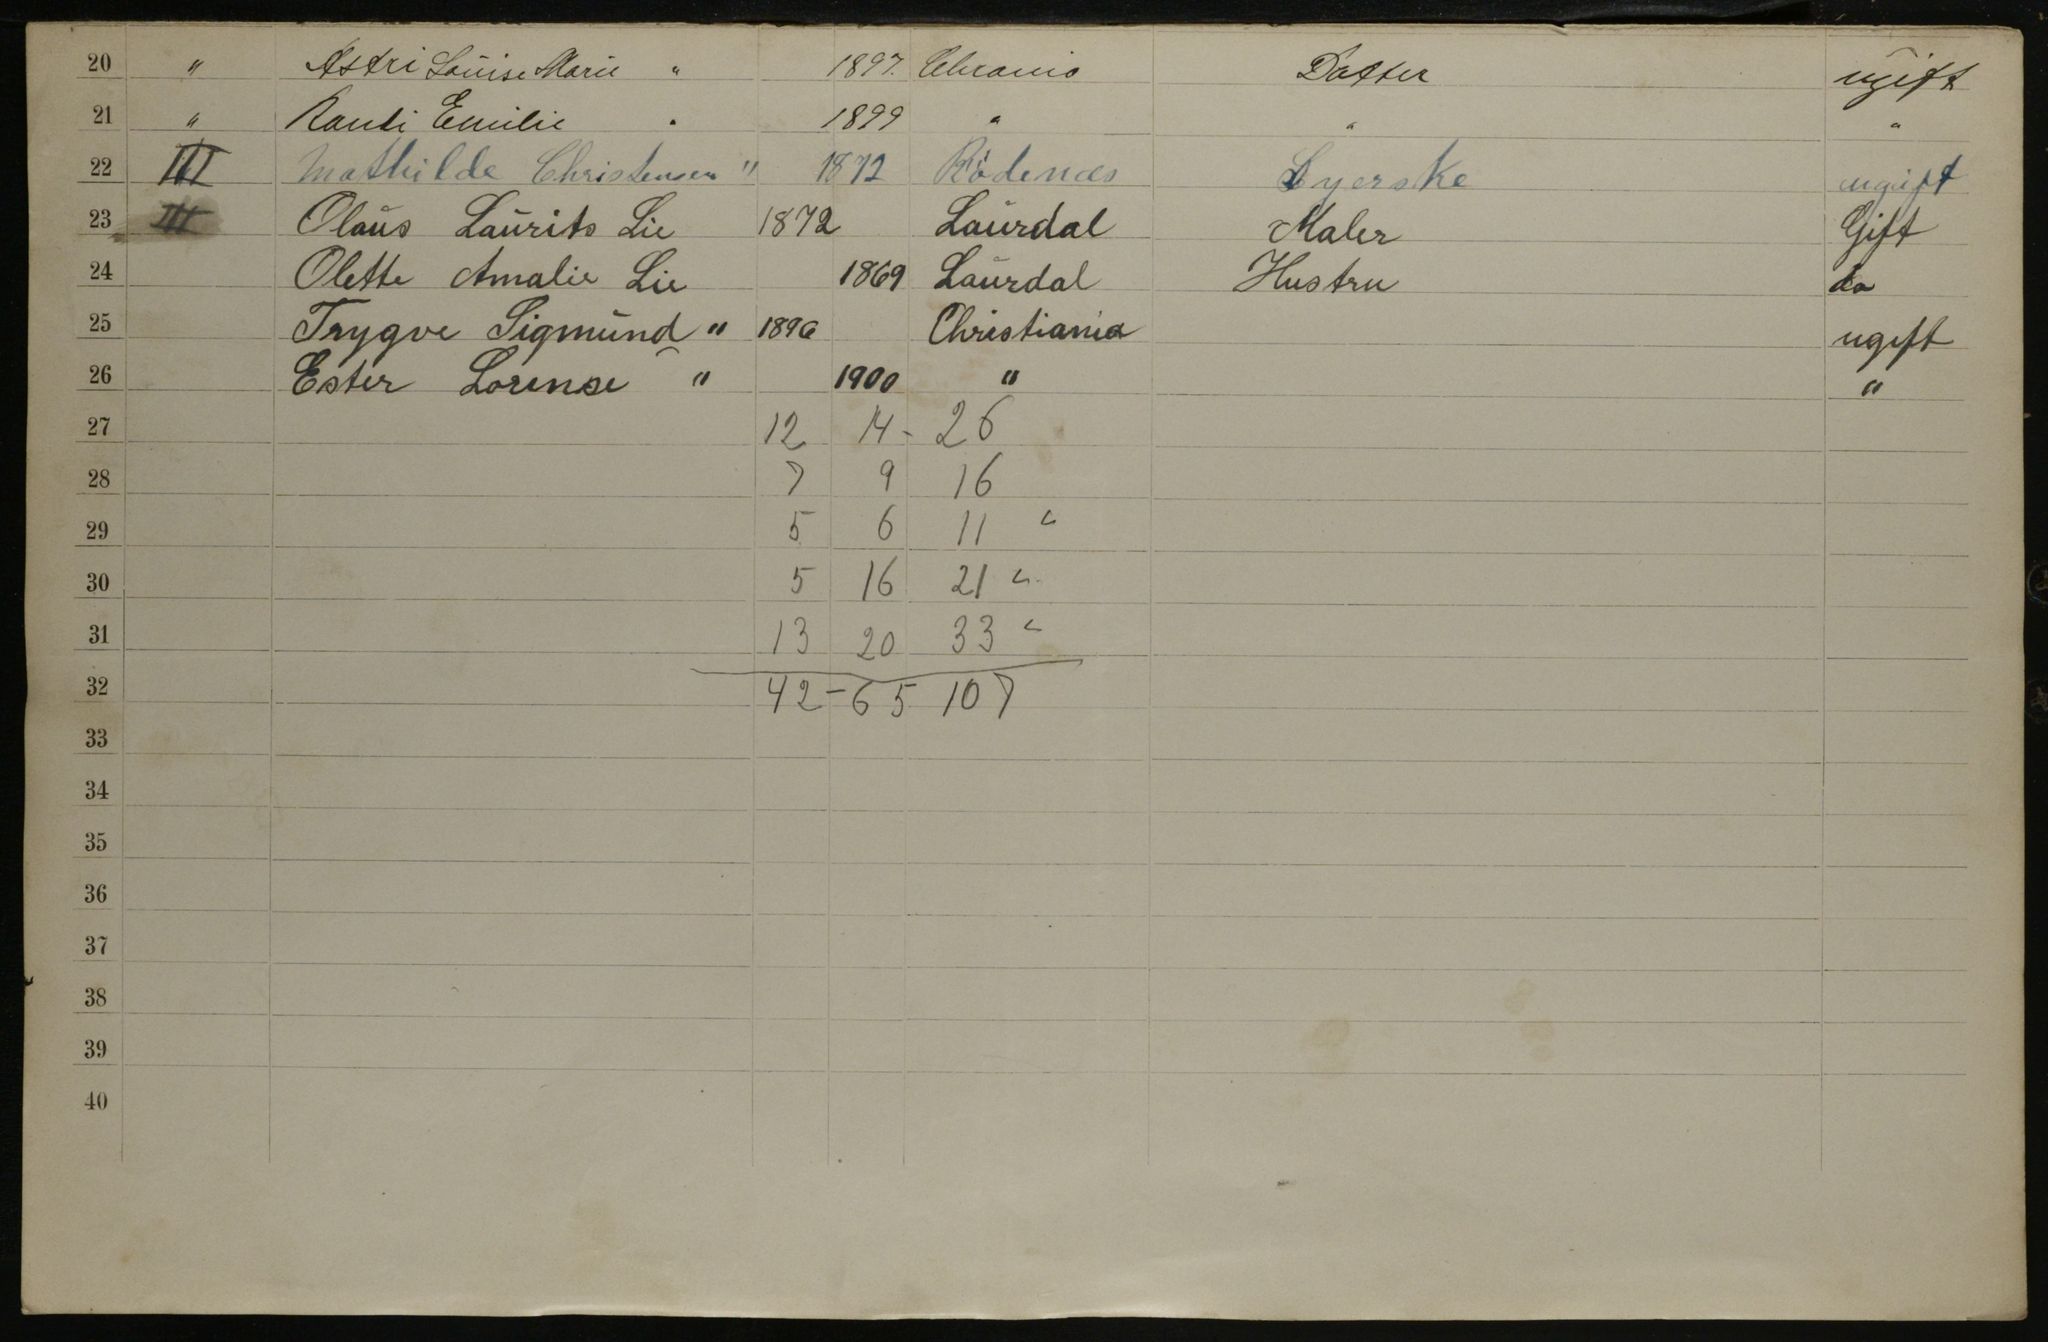 20 " Astri Louise Marie " 1897. Chrania Datter ugift
21 " Randi Emilie " 1899 " " "
22 III Mathilde Christensen " 1872 Rødenæs Syerske ugift
23 III Olaus Laurits Lie 1872 Laurdal Maler Gift
24 Olette Amalie Lie 1869 Laurdal Hustru do
25 Trygve Sigmund " 1896 Christiania ugift
26 Ester Lorense " 1900 " "
27 12 14 - 26
28 7 9 16
29 5 6 11 "
30 5 16 21 "
31 13 20 33 "
32 42 - 65 107
33
34
35
36
37
38
39
40